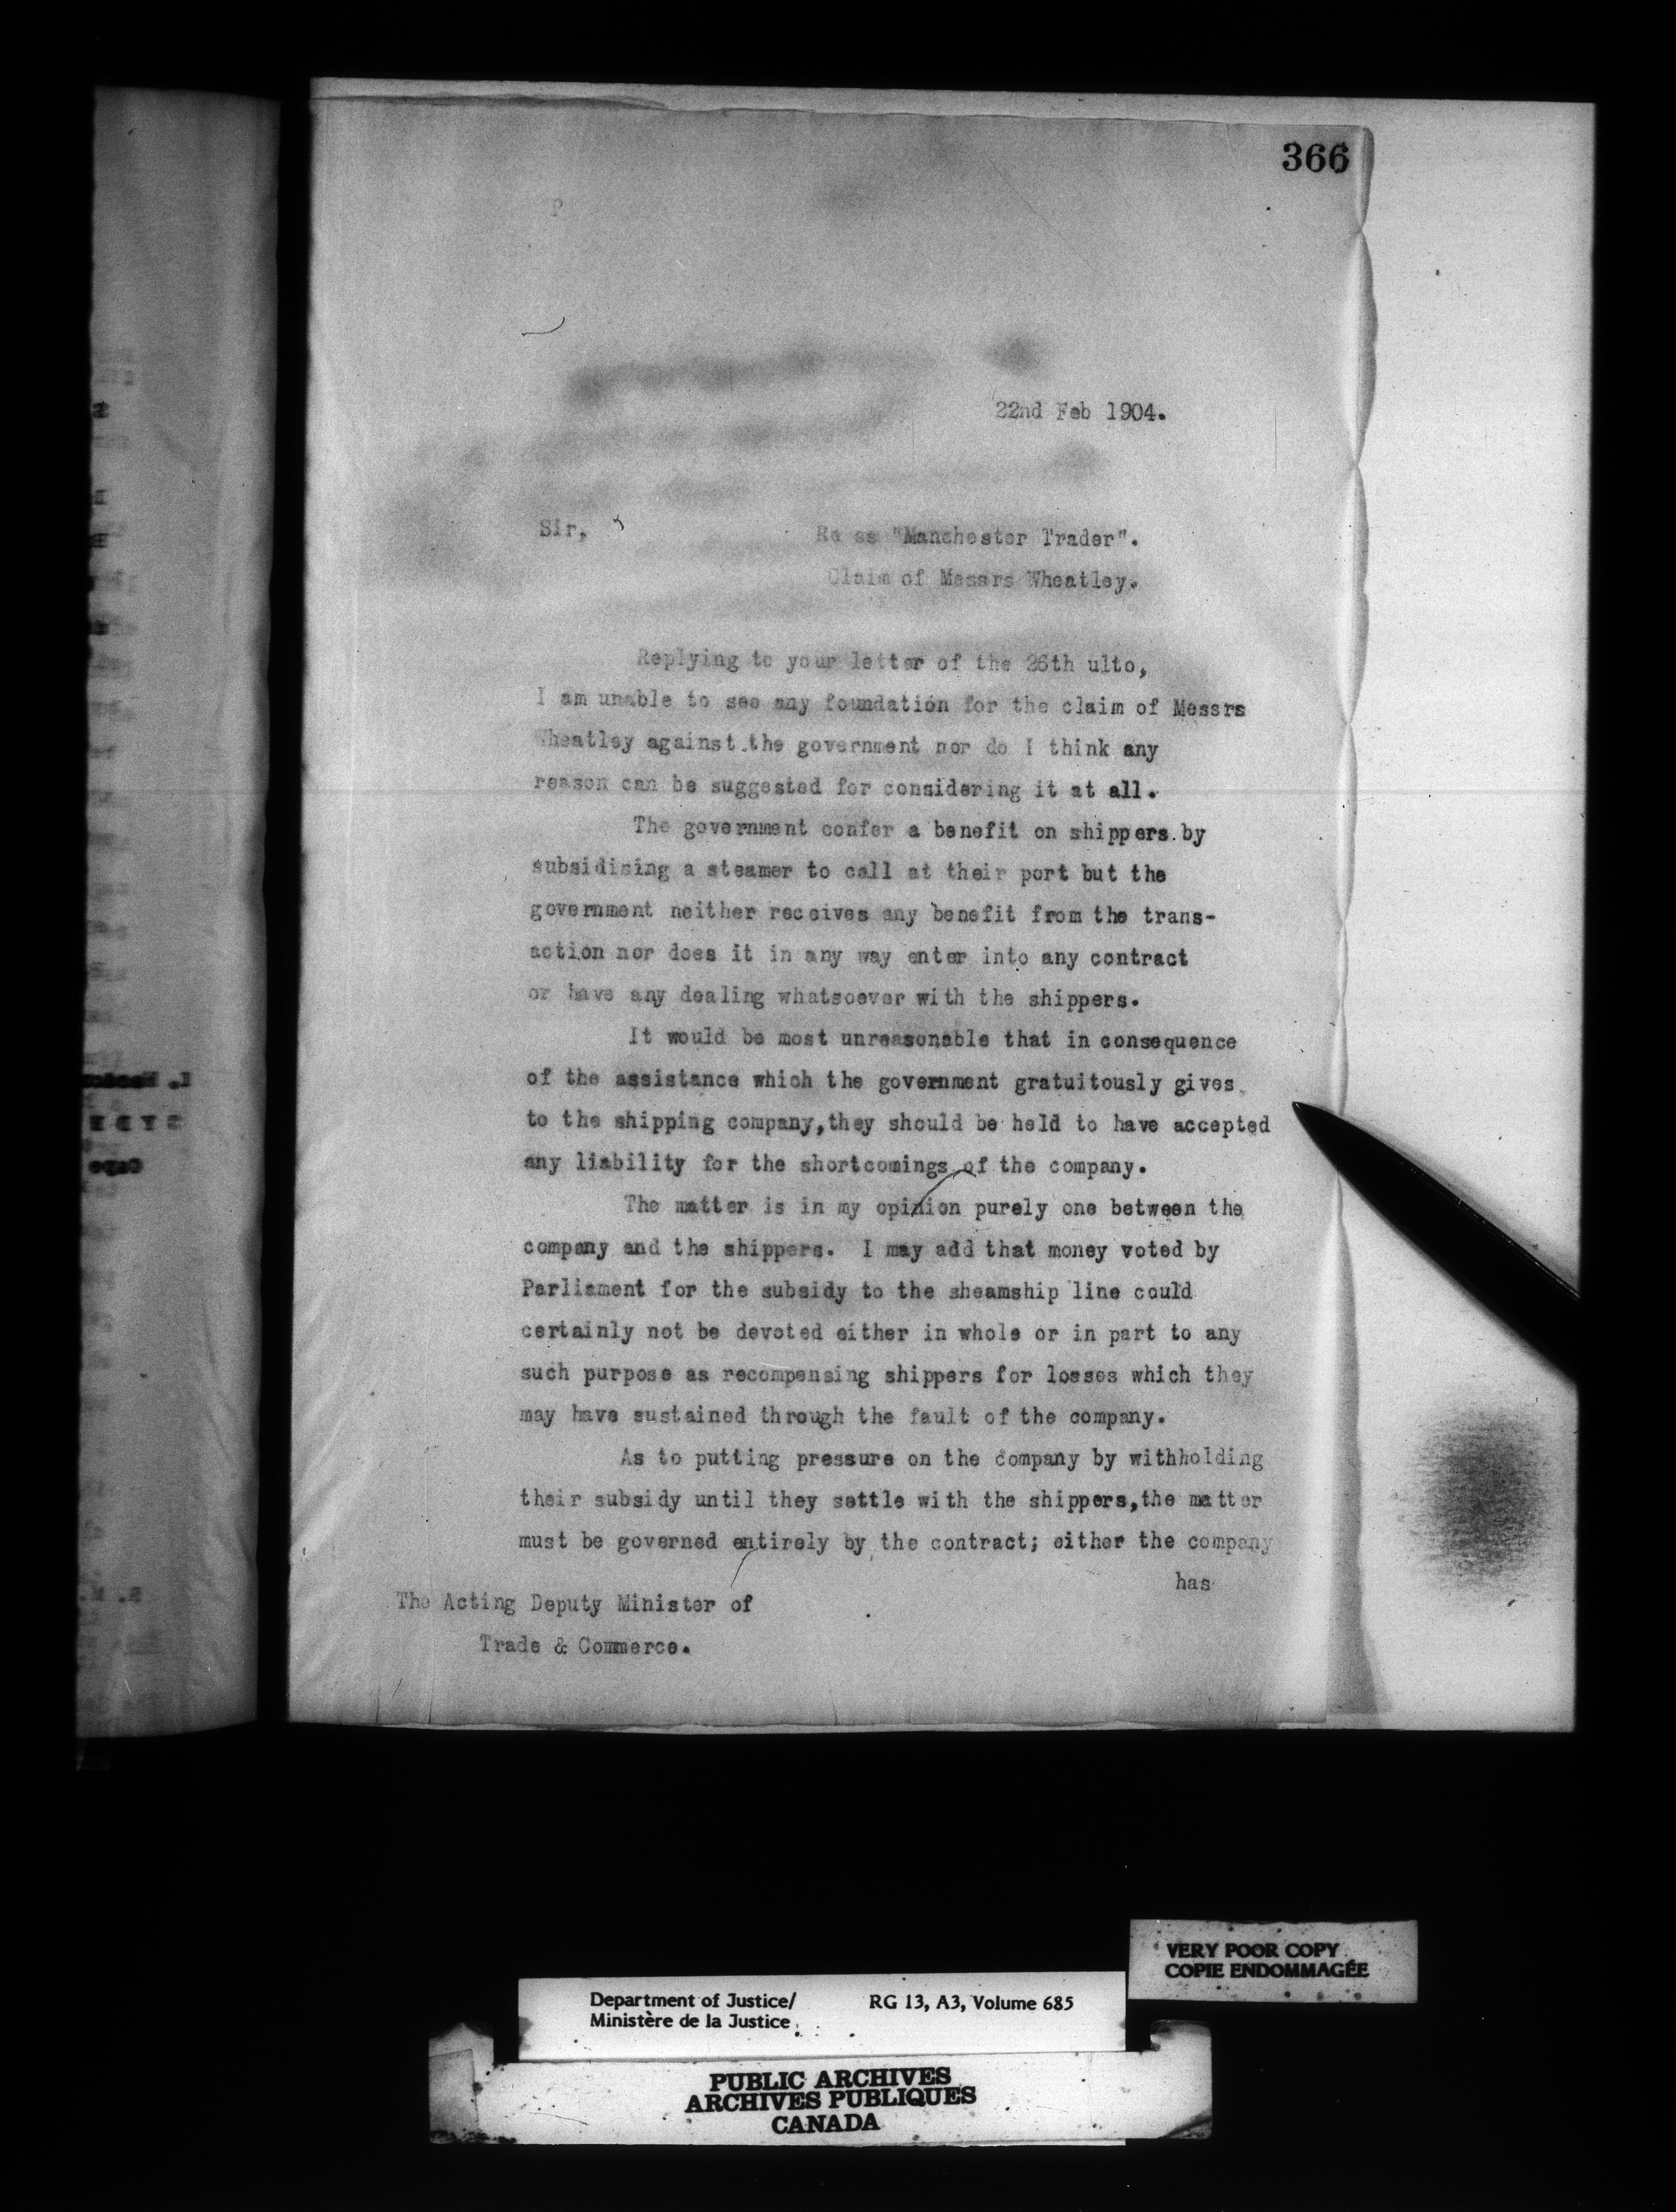 366
22nd Feb 1904.
Sir,
Re ss "Manchester Trader".
Claim of Messrs Wheatley.
Replying to your letter of the 26th ulto,
I am unable to see any foundation for the claim of Messrs
Wheatley against the government nor do I think any
reason can be suggested for considering it at all.
The government confer a benefit on shippers by
subsidising a steamer to call at their port but the
government neither receives any benefit from the trans-
action nor does it in any way enter into any contract
or have any dealing whatsoever with the shippers.
It would be most unreasonable that in consequence
of the assistance which the government gratuitously gives
to the shipping company,they should be held to have accepted
any liability for the shortcomings of the company.
The matter is in my opinion purely one between the
company and the shippers. I may add that money voted by
Parliament for the subsidy to the sheamship line could
certainly not be devoted either in whole or in part to any
such purpose as recompensing shippers for losses which they
may have sustained through the fault of the company.
As to putting pressure on the company by withholding
their subsidy until they settle with the shippers,the matter
must be governed entirely by the contract; either the company
has
The Acting Deputy Minister of
Trade & Commerce.
VERY POOR COPY
COPIE ENDOMMAGÉE
Department of Justice/
Ministère de la Justice
RG 13, A3, Volume 685
PUBLIC ARCHIVES
ARCHIVES PUBLIQUES
CANADA